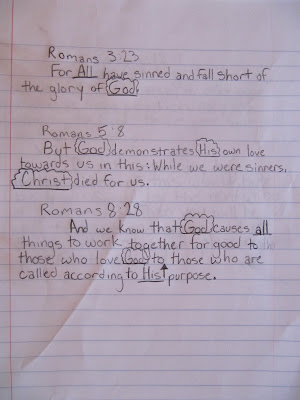 Romans 3:23
For All have sinned and fall short of
the glory of God.
Romans 5:8
But God demonstrates His own love
towards us in this: While we were sinners,
Christ died for us.
Romans 8:28
And we know that God causes all
things to work together for good to
those who love God to those who are
called according to His purpose.